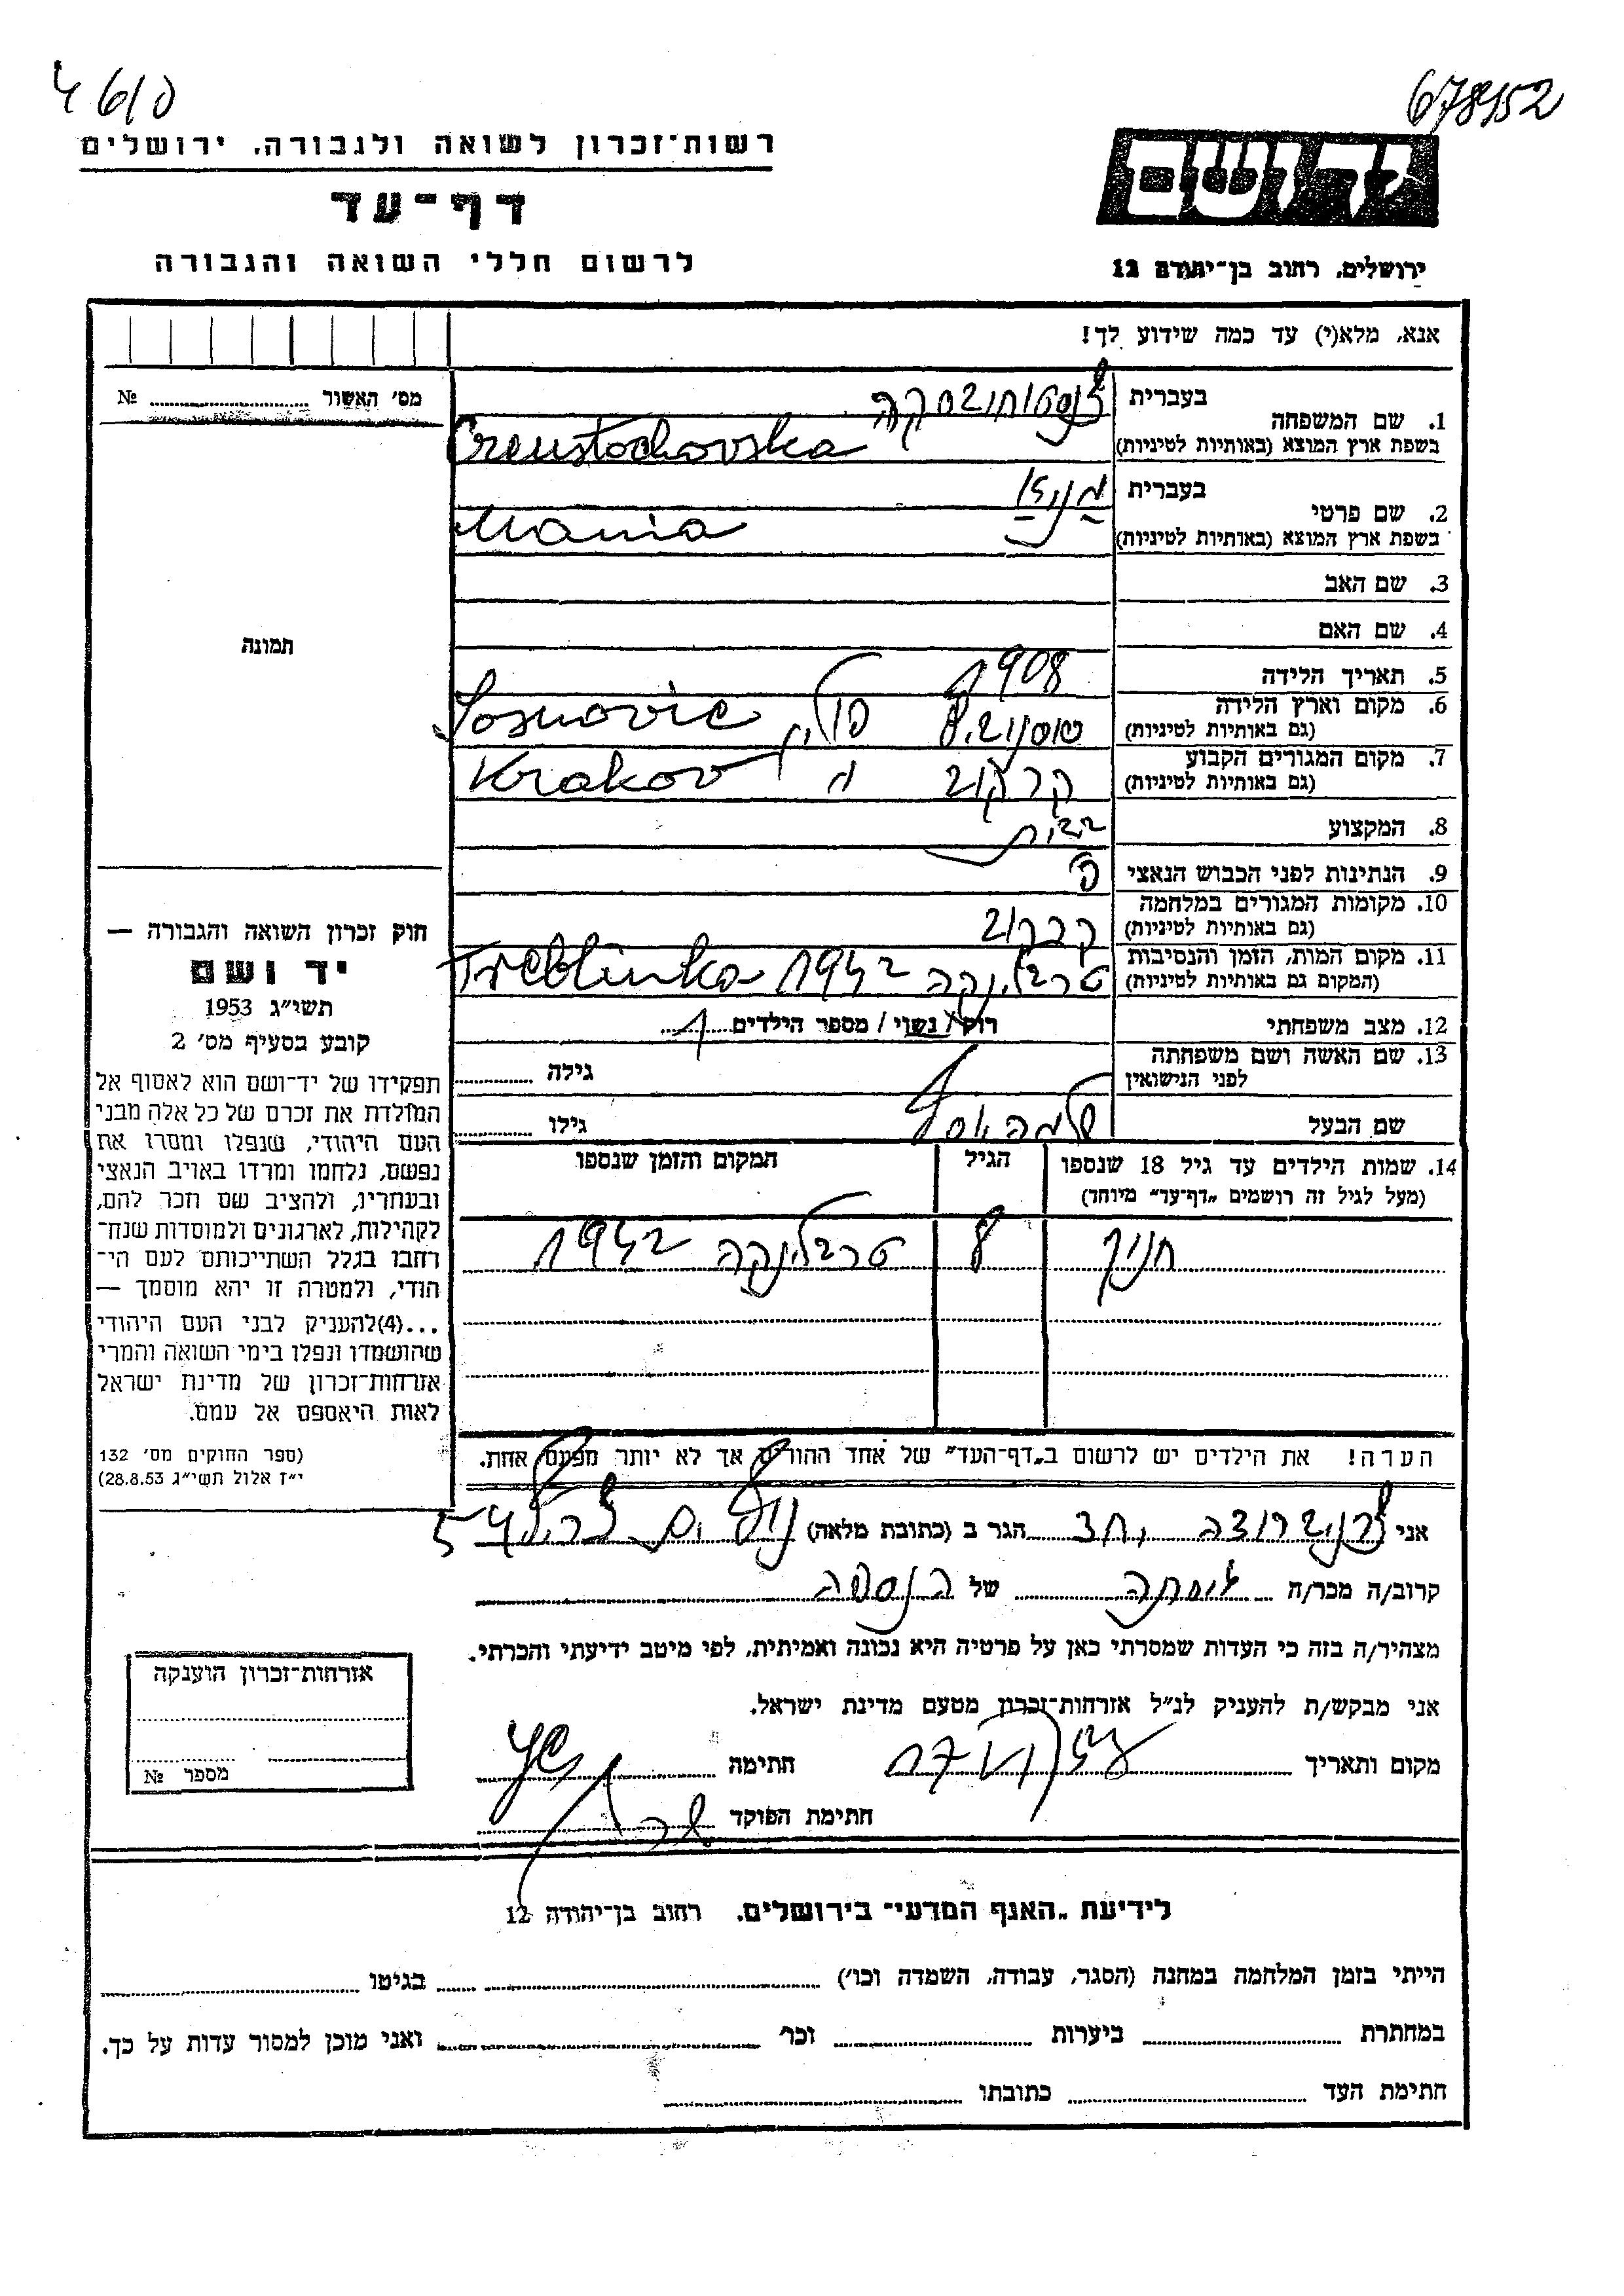 4610
678952
רשות־זכרון לשואה ולגבורה, ירושלים
דף־עד
לרשום חללי השואה והגבורה
יד ושם
ירושלים, רחוב בן־יהודה 12
אנא, מלא(י) עד כמה שידוע לך!
מס׳ האשור № 
1. שם המשפחה בעברית צ׳נסטוחובסקה
בשפת ארץ המוצא (באותיות לטיניות) Crenstochovska
2. שם פרטי בעברית מניה
בשפת ארץ המוצא (באותיות לטיניות) Mania
3. שם האב
4. שם האם
תמונה
5. תאריך הלידה 1908
6. מקום וארץ הלידה (גם באותיות לטיניות) פולין Sosnovic
7. מקום המגורים הקבוע (גם באותיות לטיניות) קרקוב Krakov
8. המקצוע
9. הנתינות לפני הכבוש הנאצי פ
10. מקומות המגורים במלחמה (גם באותיות לטיניות) קרקוב
11. מקום המות, הזמן והנסיבות (המקום גם באותיות לטיניות) טרבלינקה 1942 Treblinka
12. מצב משפחתי רוק / נשוי / מספר הילדים 1
13. שם האשה ושם משפחתה לפני הנישואין גילה
שם הבעל גילו
14. שמות הילדים עד גיל 18 שנספו הגיל המקום והזמן שנספו
(מעל לגיל זה רושמים „דף־עד״ מיוחד)
חניך 8 טרבלינקה 1942
הערה! את הילדים יש לרשום ב„דף־העד״ של אחד ההורים אך לא יותר מפעם אחת.
חוק זכרון השואה והגבורה —
יד ושם
תשי״ג 1953
קובע בסעיף מס׳ 2
תפקידו של יד־ושם הוא לאסוף אל
המולדת את זכרם של כל אלה מבני
העם היהודי, שנפלו ומסרו את
נפשם, נלחמו ומרדו באויב הנאצי
ובעוזריו, ולהציב שם וזכר להם,
לקהילות, לארגונים ולמוסדות שנח־
רחבו בגלל השתייכותם לעם הי־
הודי, ולמטרה זו יהא מוסמך —
...(4)להעניק לבני העם היהודי
שהושמדו ונפלו בימי השואה והמרי
אזרחות־זכרון של מדינת ישראל
לאות היאספם אל עמם.
(ספר החוקים מס׳ 132
י״ז אלול תשי״ג 28.8.53)
אני הגר ב (כתובת מלאה)
קרוב/ה מכר/ה של הנספה
מצהיר/ה בזה כי העדות שמסרתי כאן על פרטיה היא נכונה ואמיתית, לפי מיטב ידיעתי והכרתי.
אני מבקש/ת להעניק לנ״ל אזרחות־זכרון מטעם מדינת ישראל.
מקום ותאריך חתימה
חתימת הפוקד
אזרחות־זכרון הוענקה
מספר №
לידיעת „האגף המדעי״ בירושלים, רחוב בן־יהודה 12
הייתי בזמן המלחמה במחנה (הסגר, עבודה, השמדה וכו׳) בגיטו
במחתרת ביערות וכו׳ ואני מוכן למסור עדות על כך.
חתימת העד כתובתו